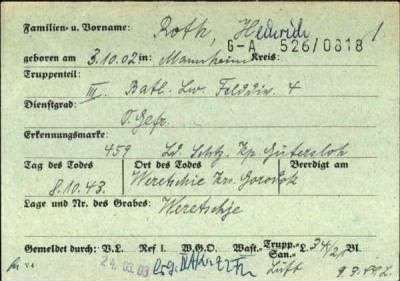 Familien- u. Vorname: Roth, Heinrich
G-A 526/0818 /
geboren am 3.10.02 in: Mannheim Kreis:
Truppenteil:
III. Batl. Lw. Felddiv. 4
Dienstgrad:
O. Gefr.
Erkennungsmarke:
459 Ld. Schtz. Kp Gütersloh
Tag des Todes Ort des Todes Beerdigt am
8.10.43. Weretschie Krs. Gorodok
Lage und Nr. des Grabes: Weretschje
Gemeldet durch: V.L. Ref I. W.G.O. Wast. Trupp. San. L 34/21 Bl.
V 4 24. 03. 03 Luft 9.3.44